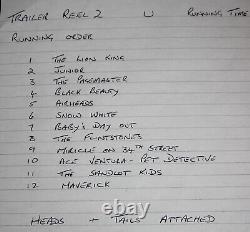 TRAILER REEL 2 U RUNNING TIME
RUNNING ORDER
1 THE LION KING
2 JUNIOR
3 THE PAGEMASTER
4 BLACK BEAUTY
5 AIRHEADS
6 SNOW WHITE
7 BABY'S DAY OUT
8 THE FLINTSTONES
9 MIRICLE ON 34TH STREET
10 ACE VENTURA - PET DETECTIVE
11 THE SANDLOT KIDS
12 MAVERICK
HEADS + TAILS ATTACHED